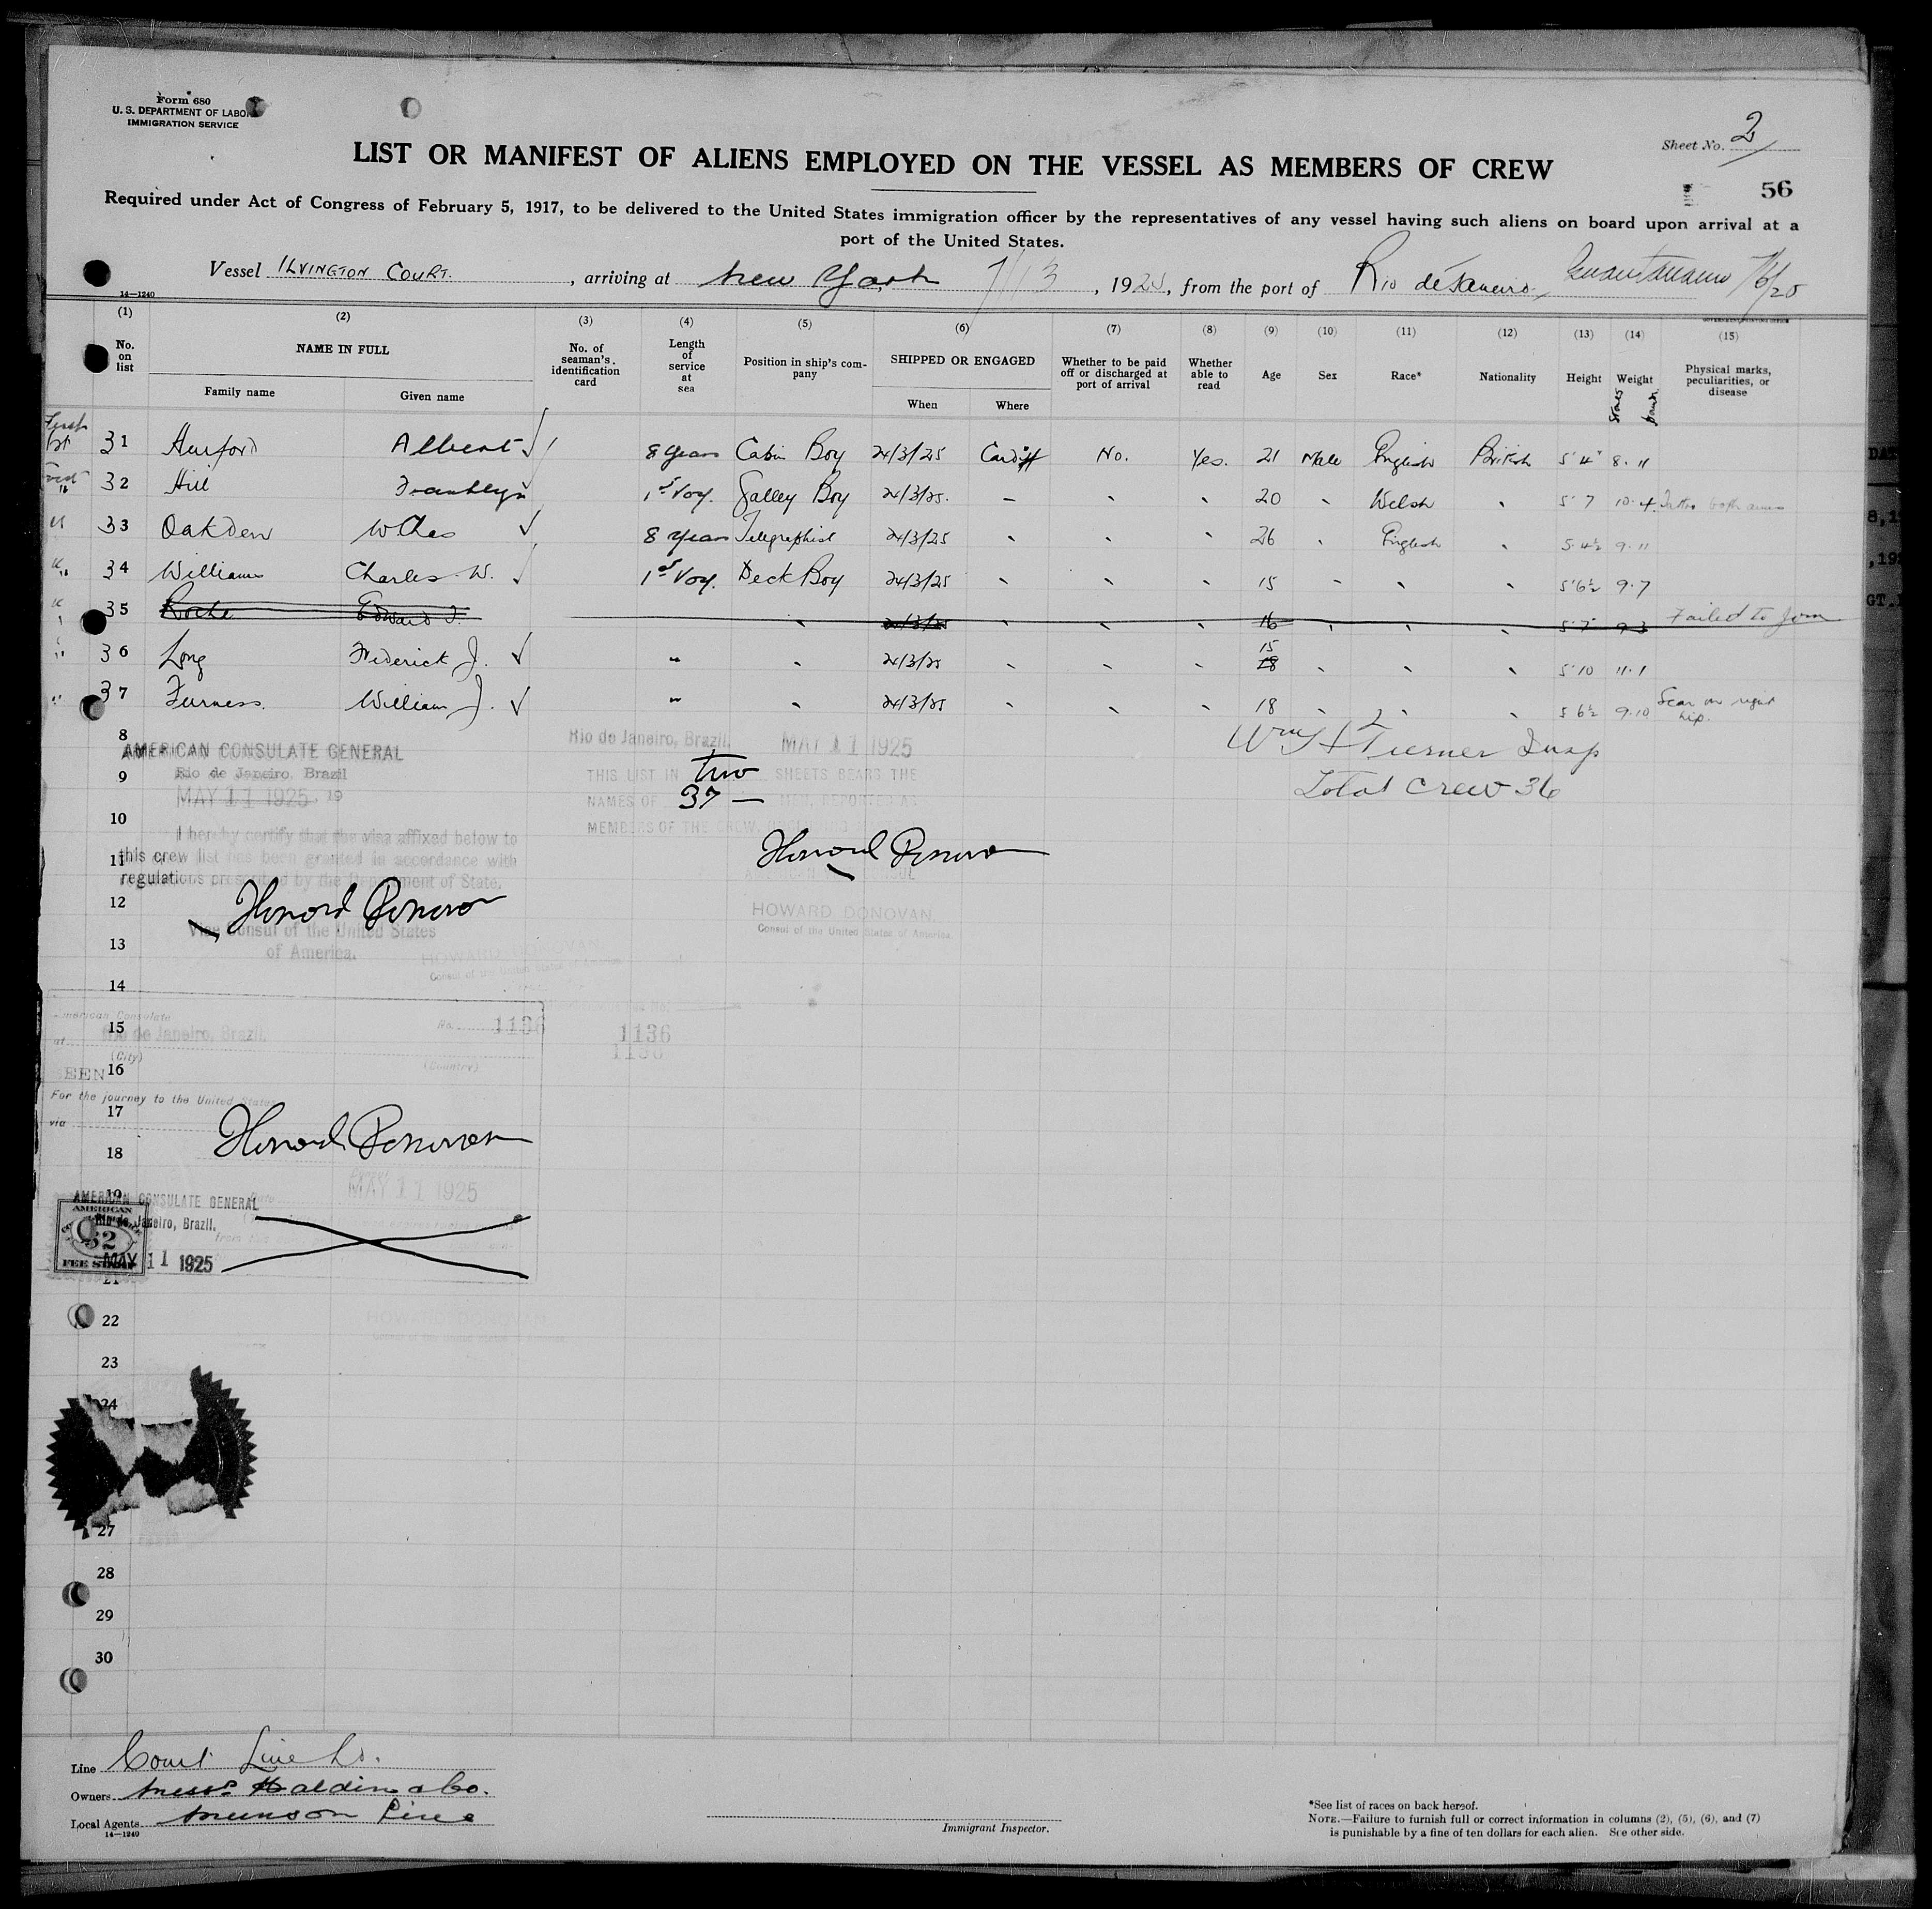 Form 680
U. S. DEPARTMENT OF LABOR
IMMIGRATION SERVICE
Sheet No. 2
56
LIST OR MANIFEST OF ALIENS EMPLOYED ON THE VESSEL AS MEMBERS OF CREW
Required under Act of Congress of February 5, 1917, to be delivered to the United States immigration officer by the representatives of any vessel having such aliens on board upon arrival at a
port of the United States.
Vessel ILVINGTON COURT. , arriving at New York 7/13 , 1925, from the port of Rio de Janeiro, Guantanamo
14—1240
(1) (2) (3) (4) (5) (6) (7) (8) (9) (10) (11) (12) (13) (14) (15)
No. on list
NAME IN FULL
Family name
Given name
No. of seaman's identification card
Length of service at sea
Position in ship's company
SHIPPED OR ENGAGED
When
Where
Whether to be paid off or discharged at port of arrival
Whether able to read
Age
Sex
Race*
Nationality
Height
Weight
Physical marks, peculiarities, or disease
31 Hurford Albert 8 years Cabin Boy 24/3/25 Cardiff No. Yes. 21 Male English British 5'4" 8.11
32 Hill Franklyn 1st Voy. Galley Boy 24/3/25. — 20 Welsh 5'7 10.4 Tattoo both arms
33 Oakden W Chas 8 years Telegraphist 24/3/25 26 English 5.4½ 9.11
34 Williams Charles W. 1st Voy. Deck Boy 24/3/25 15 5'6½ 9.7
35 Roche Edward J. 24/3/25 16 5'7 9.3 Failed to Join
36 Long Frederick J. " 24/3/25 15 18 5'10 11.1
37 Furness. William J. " 24/3/25 18 5 6½ 9.10 Scar on right hip.
8
9
10
11
12
13
14
15
16
17
18
19
21
22
23
24
27
28
29
30
AMERICAN CONSULATE GENERAL
Rio de Janeiro, Brazil
MAY 11 1925 19
I hereby certify that the visa affixed below to
this crew list has been granted in accordance with
regulations prescribed by the Department of State.
Howard Donovan
Vice Consul of the United States
of America.
Rio de Janeiro, Brazil. MAY 11 1925
THIS LIST IN two SHEETS BEARS THE
NAMES OF 37 — MEN, REPORTED AS
MEMBERS OF THE CREW
Howard Donovan
HOWARD DONOVAN.
Consul of the United States of America.
Wm H Tierner Insp
Total Crew 36
HOWARD DONOVAN.
Consul of the United States of America
American Consulate
No. 1136
at Rio de Janeiro, Brazil.
(City)
(Country)
1136
1136
SEEN
For the journey to the United States
via
Howard Donovan
MAY 11 1925
AMERICAN CONSULATE GENERAL
Rio de Janeiro, Brazil.
MAY 11 1925
AMERICAN
$2
FEE STAMP
HOWARD DONOVAN
Line Court Line Ld.
Owners Messrs Haldin & Co.
Local Agents Munson Line
14—1240
Immigrant Inspector.
*See list of races on back hereof.
NOTE.—Failure to furnish full or correct information in columns (2), (5), (6), and (7)
is punishable by a fine of ten dollars for each alien. See other side.